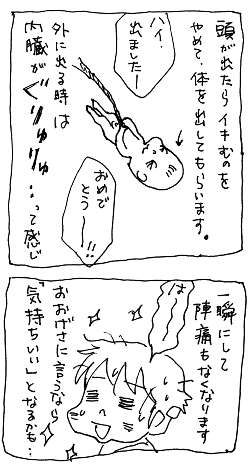 頭が出たらイキむのを
やめて、体を出してもらいます。
ハイ!
出ましたー
おめで
とうー!!
外に出る時は
内臓が
ぐりゅりゅ
…って感じ
一瞬にして
陣痛もなくなります
おおげさに言うなら
「気持ちいい」となるかも…